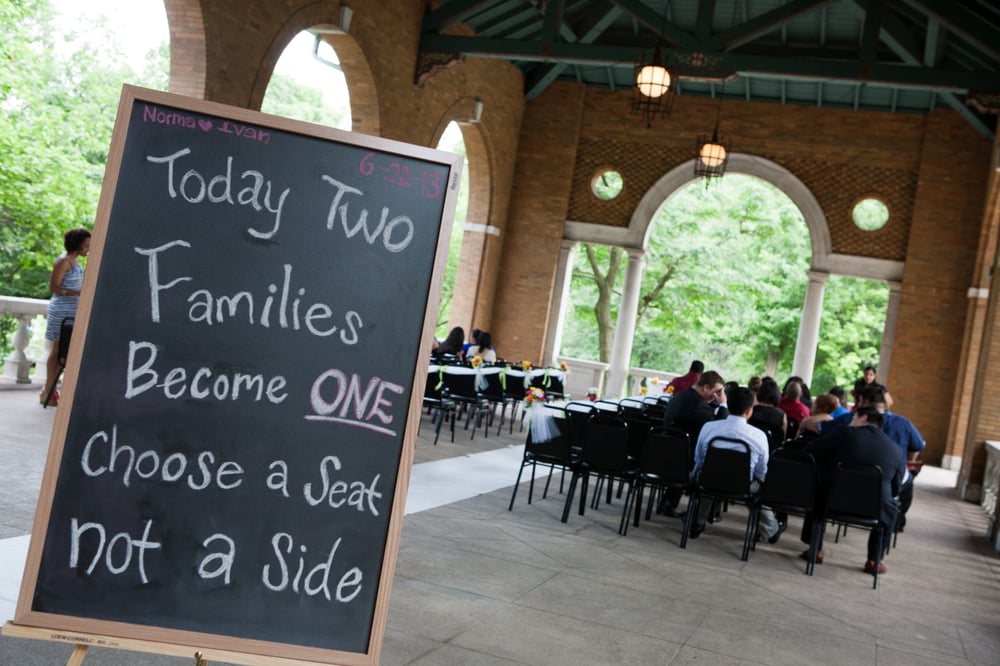 Norma ♥ Ivan
6-22-13
Today Two
Families
Become ONE
Choose a Seat
not a Side
LOEW-CORNELL